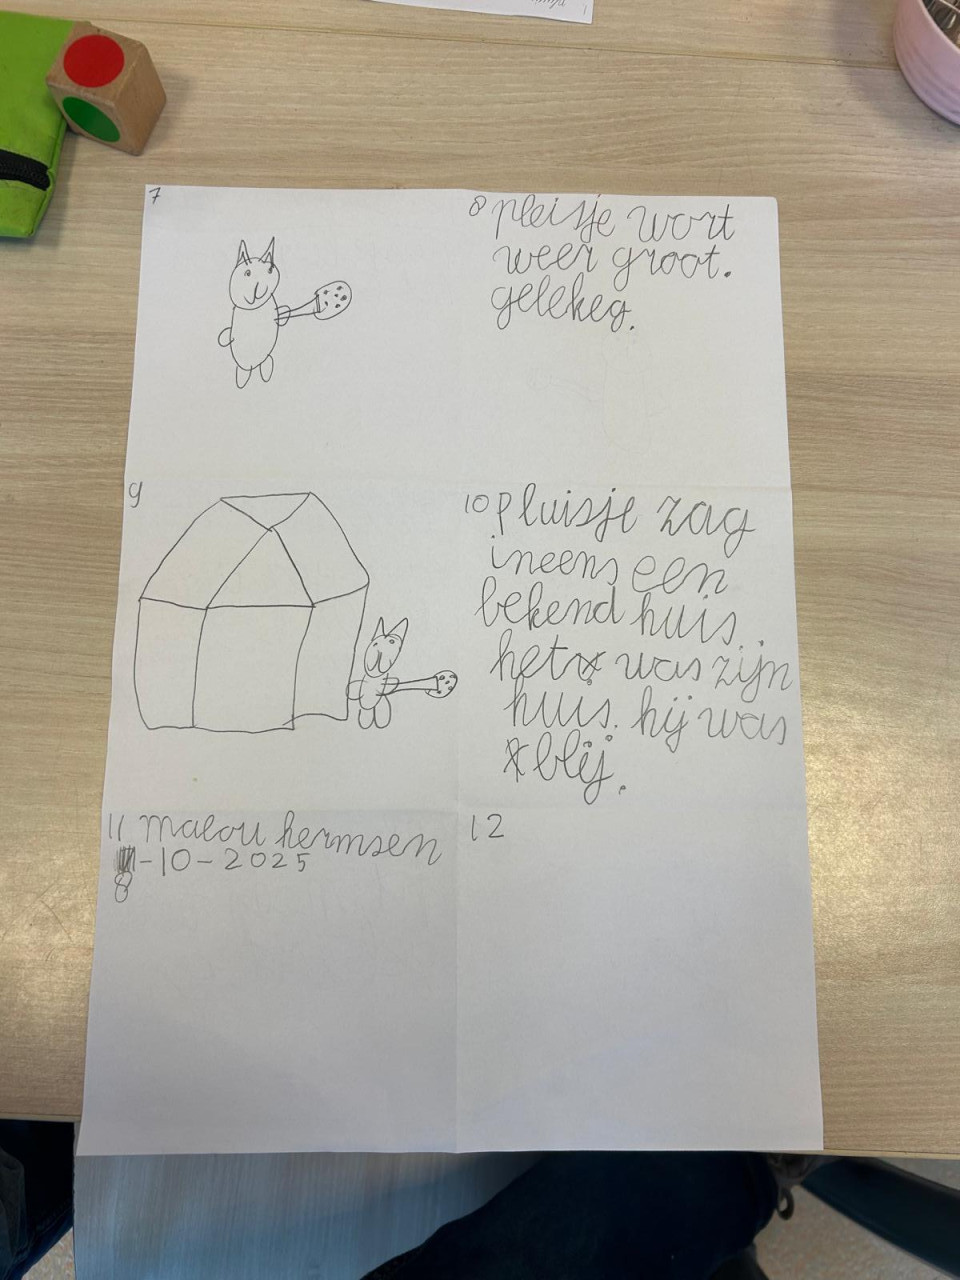 7
8 pleisje wort
weer groot.
gelekeg.
9
10 pluisje zag
ineens een
bekend huis.
het was zijn
huis. hij was
blij.
11 malou hermsen
8-10-2025
12